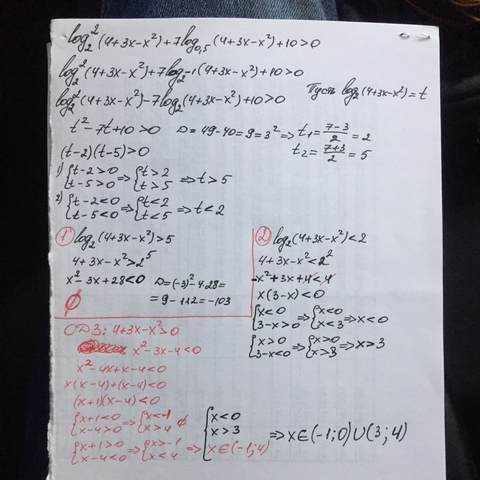 log₂²(4+3x-x²)+7log₀,₅(4+3x-x²)+10>0
log₂²(4+3x-x²)+7log₂-1(4+3x-x²)+10>0
log₂²(4+3x-x²)-7log₂(4+3x-x²)+10>0 Пусть log₂(4+3x-x²)=t
t²-7t+10>0 D=49-40=9=3² => t₁=(7-3)/2=2
t₂=(7+3)/2=5
(t-2)(t-5)>0
1) {t-2>0 t-5>0 => {t>2 t>5 => t>5
2) {t-2<0 t-5<0 => {t<2 t<5 => t<2
1 log₂(4+3x-x²)>5
4+3x-x²>2⁵
x²-3x+28<0 D=(-3)²-4·28=
=9-112=-103
∅
2 log₂(4+3x-x²)<2
4+3x-x²<2²
-x²+3x+4<4
x(3-x)<0
{x<0 3-x>0 => {x<0 x<3 => x<0
{x>0 3-x<0 => {x>0 x>3 => x>3
ОДЗ: 4+3x-x²>0
x²-3x-4<0
x²-4x+x-4<0
x(x-4)+(x-4)<0
(x+1)(x-4)<0
{x+1<0 x-4>0 => {x<-1 x>4 ∅
{x+1>0 x-4<0 => {x>-1 x<4 => x∈(-1;4)
{x<0 x>3 => x∈(-1;0)∪(3;4)